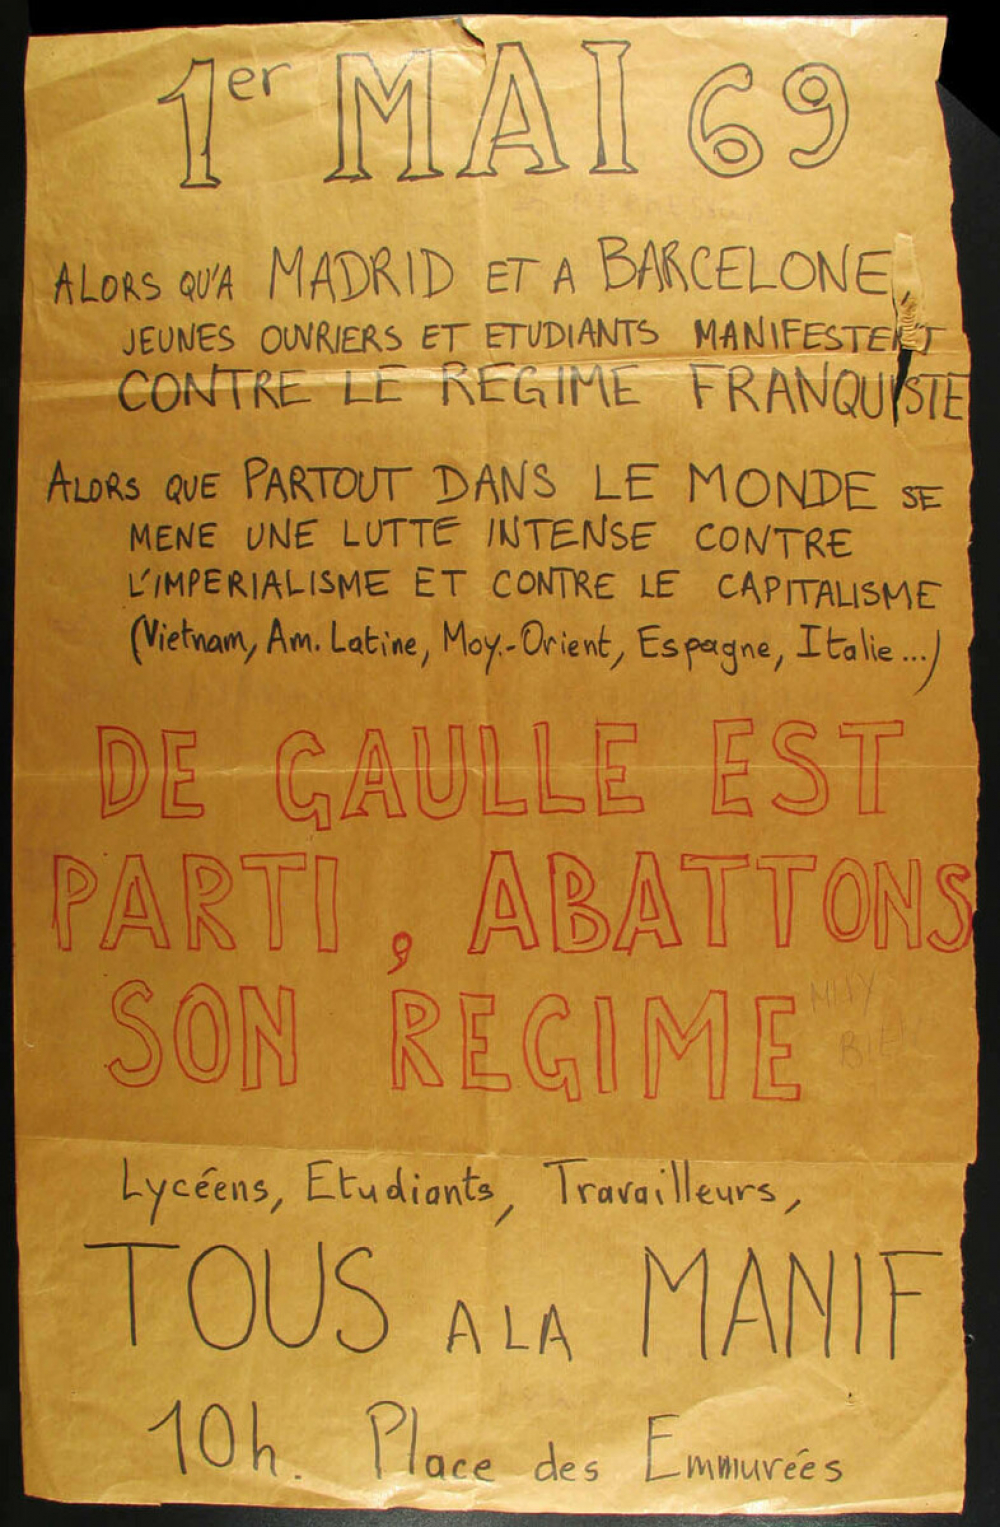 1er MAI 69
ALORS QU'A MADRID ET A BARCELONE,
JEUNES OUVRIERS ET ETUDIANTS MANIFESTENT
CONTRE LE REGIME FRANQUISTE
ALORS QUE PARTOUT DANS LE MONDE SE
MENE UNE LUTTE INTENSE CONTRE
L'IMPERIALISME ET CONTRE LE CAPITALISME
(Vietnam, Am. Latine, Moy.-Orient, Espagne, Italie...)
DE GAULLE EST
PARTI, ABATTONS
SON REGIME
Lycéens, Etudiants, Travailleurs,
TOUS A LA MANIF
10h. Place des Emmurées